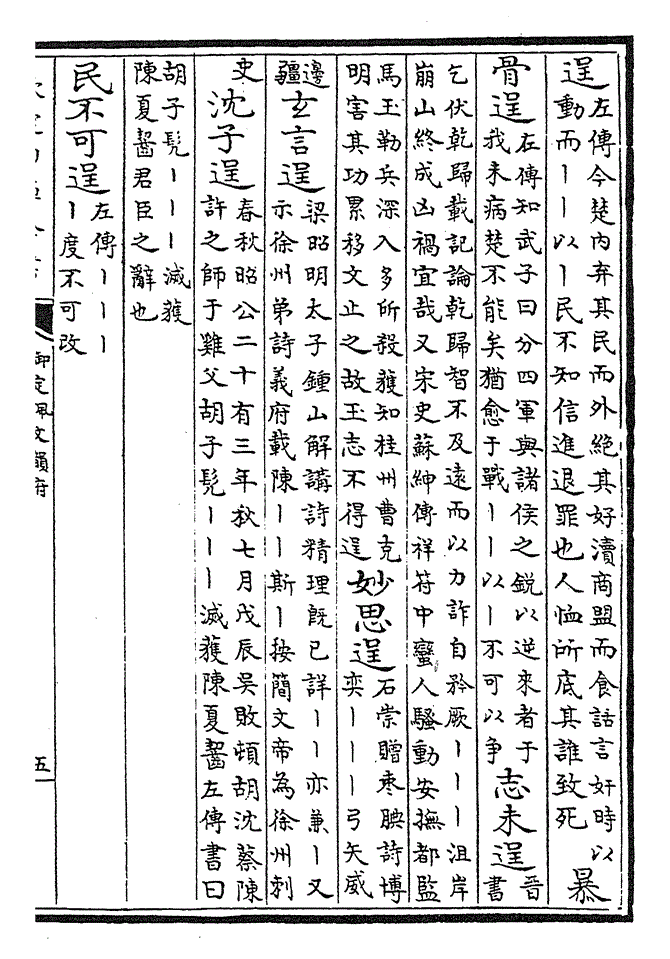 逞
左傳今楚内弃其民而外絶其好瀆商盟而食話言奸時以
動而｜｜以｜民不知信進退罪也人恤所底其誰致死
暴
骨逞
左傳知武子曰分四軍與諸侯之鋭以逆來者于
我未病楚不能矣猶愈于戰｜｜以｜不可以争
志未逞
晋
書
乞伏乾歸載記論乾歸智不及遠而以力詐自矜厥｜｜｜沮岸
崩山終成凶禍宜哉又宋史蘇紳傳祥符中蠻人騷動安撫都監
馬玉勒兵深入多所殺獲知桂州曹克
明害其功累移文止之故玉志不得逞
妙思逞
石崇贈棗腆詩博
奕｜｜｜弓矢威
邊
疆
玄言逞
梁昭明太子鍾山解講詩精理既已詳｜｜亦兼｜又
示徐州弟詩義府載陳｜｜斯｜按簡文帝為徐州刺
史
沈子逞
春秋昭公二十有三年秋七月戊辰吳敗頓胡沈蔡陳
許之師于雞父胡子髡｜｜｜滅獲陳夏齧左傳書曰
胡子髡｜｜｜滅獲
陳夏齧君臣之辭也
民不可逞
左傳｜｜｜
｜度不可改
御定佩文韻府
五